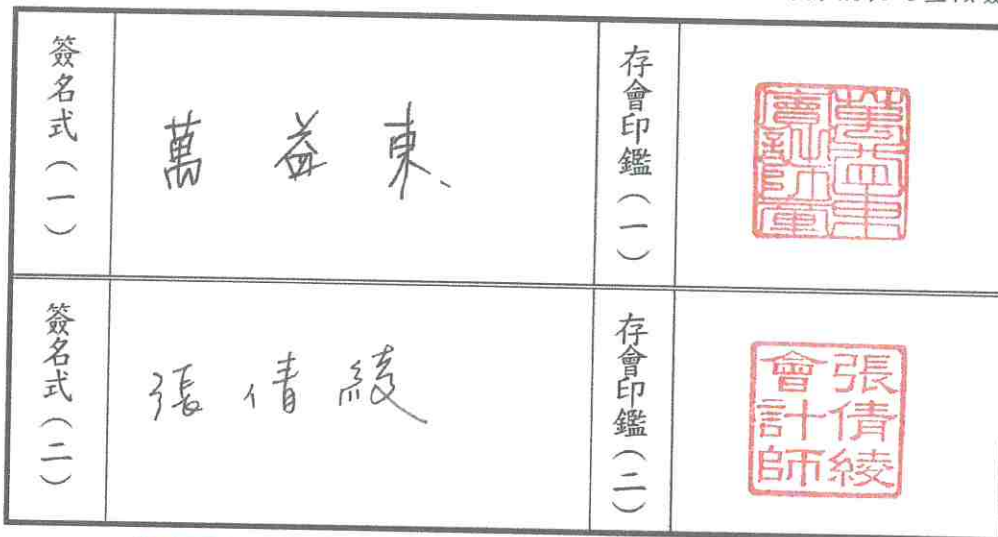 簽名式(一)
萬益東
存會印鑑(一)
萬益東會計師
簽名式(二)
張倩綾
存會印鑑(二)
張倩綾會計師